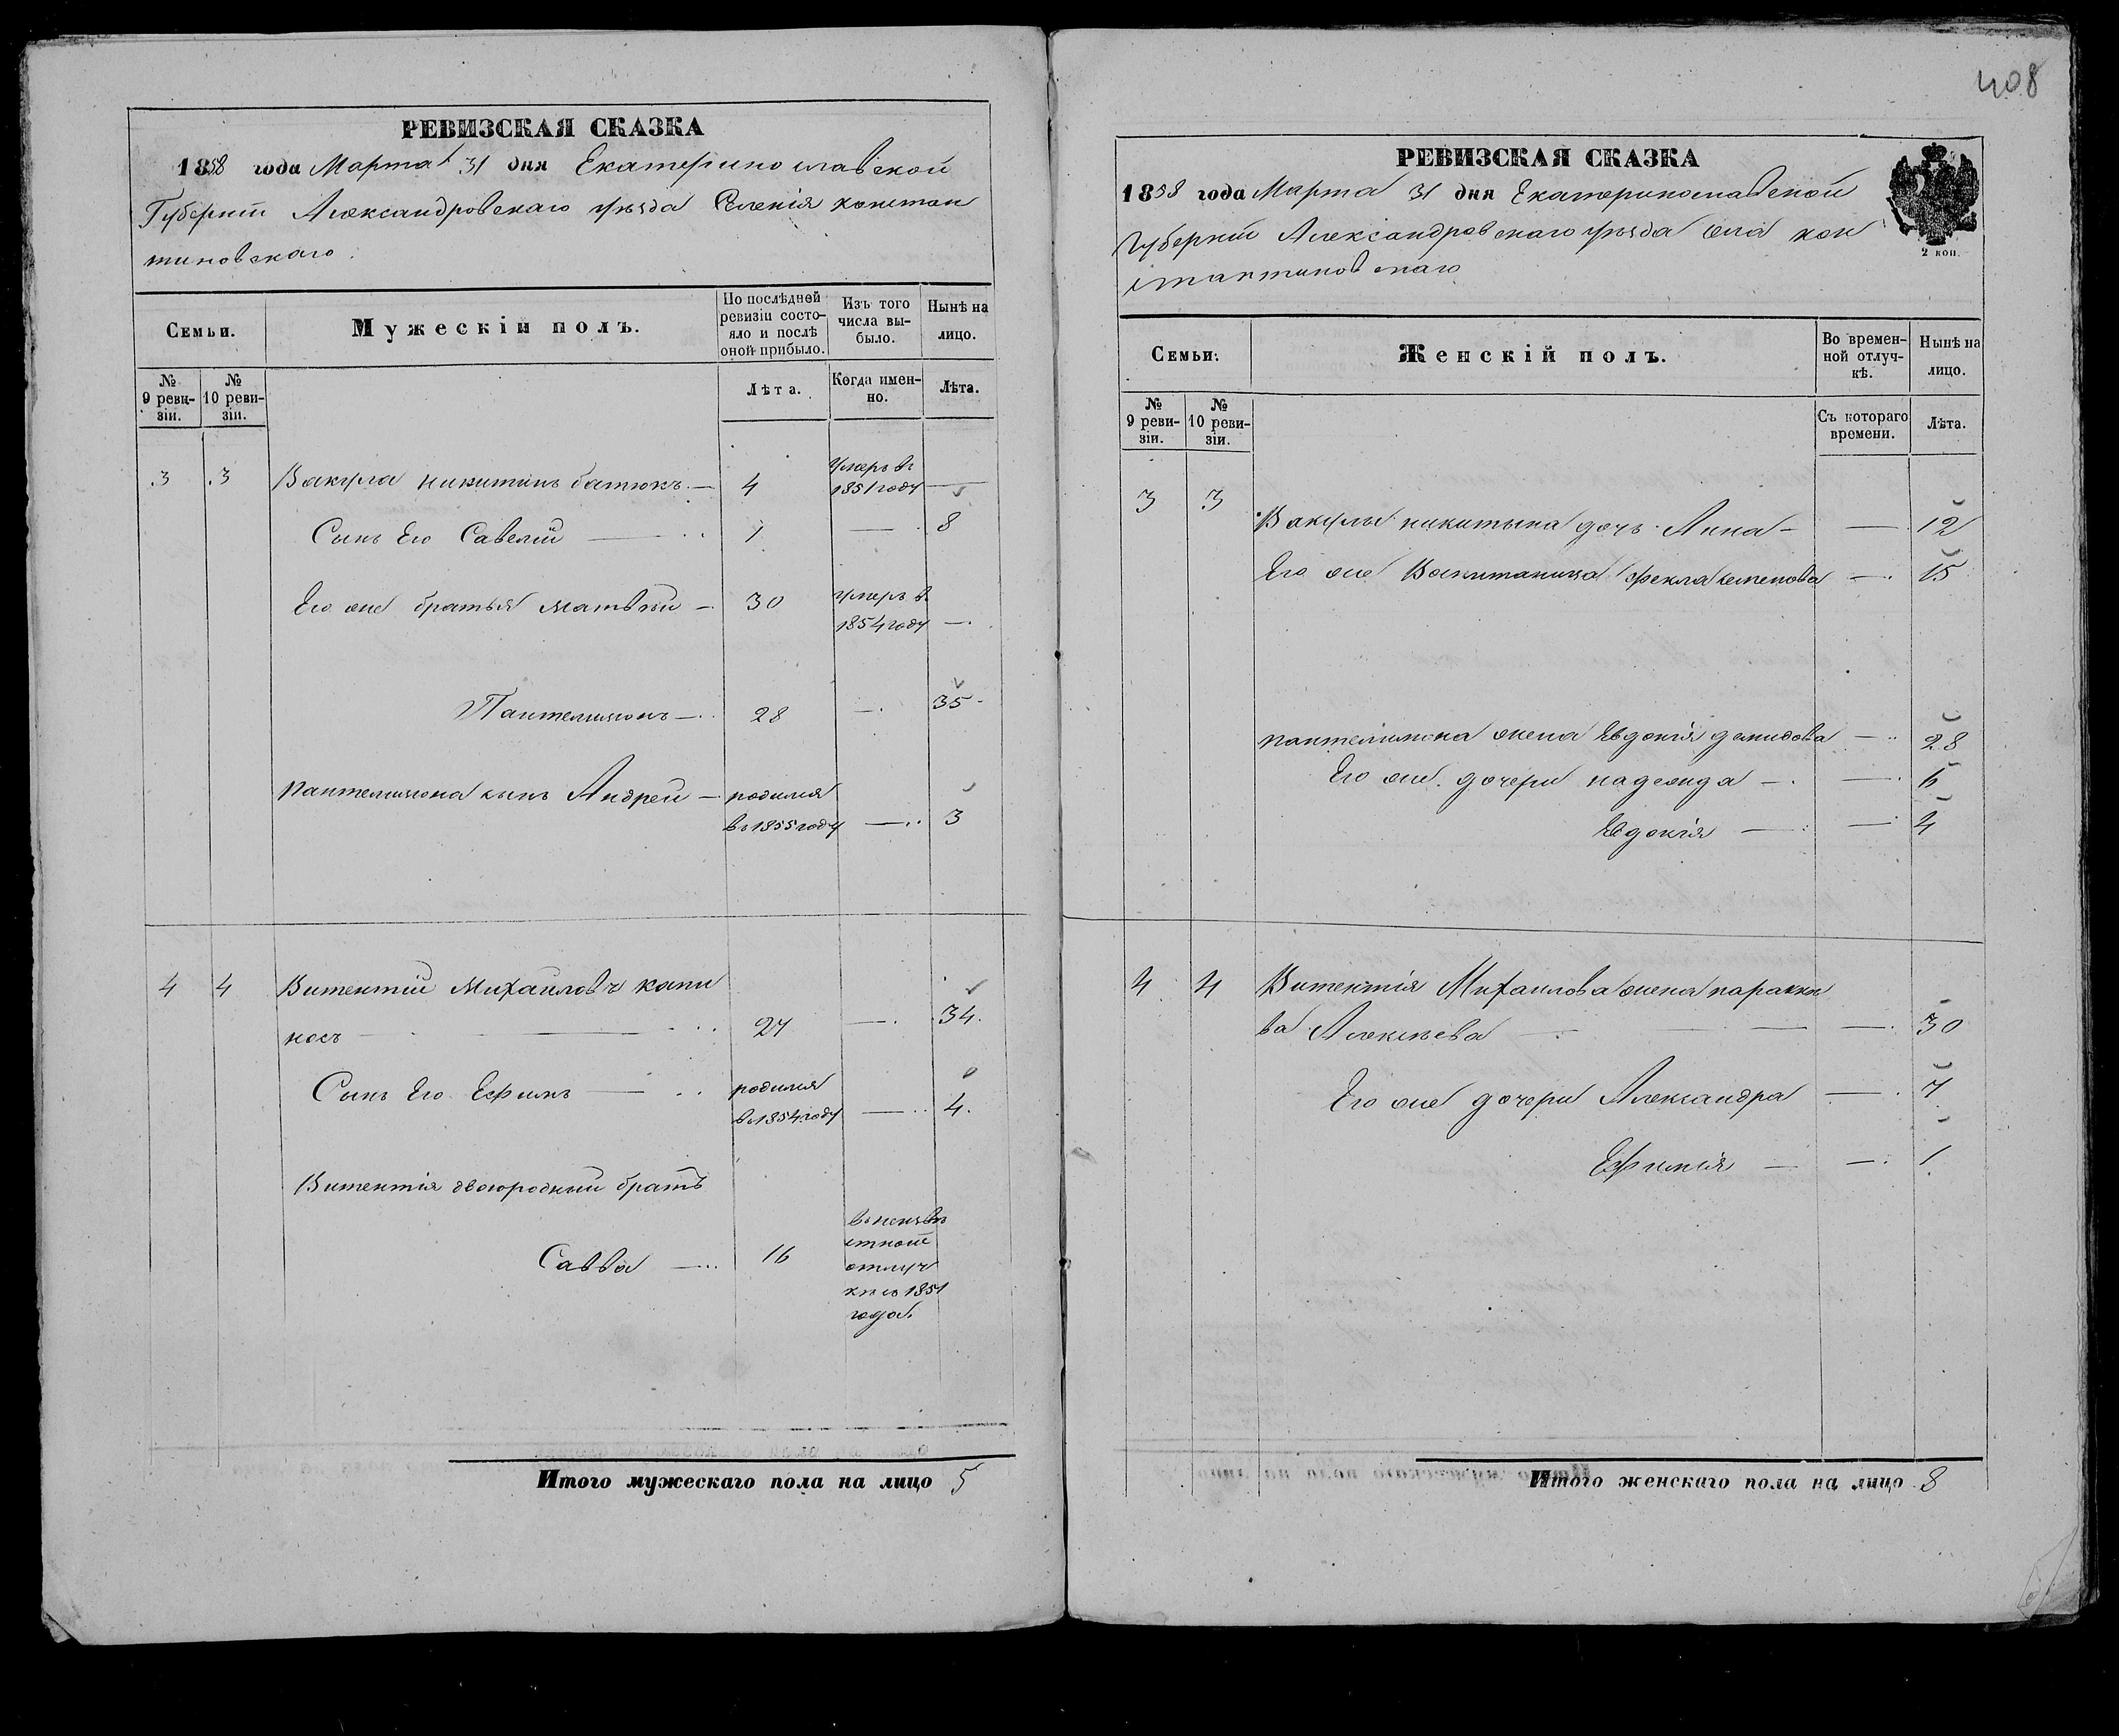 РЕВИЗСКАЯ СКАЗКА
1858 года Марта 31 дня Екатеринославской
Губерніи Александровскаго уѣзда Селенія констан
тиновскаго
Семьи.
Мужескій полъ.
По послѣдней ревизіи состояло и послѣ оной прибыло.
Изъ того числа выбыло.
Нынѣ на лицо.
№ 9 ревизіи.
№ 10 ревизіи.
Лѣта.
Когда именно.
Лѣта.
3 3 Вакула никитинъ батюкъ — 4 умеръ въ 1851 году —
Сынъ Его Савелій — 1 — 8
Его же братья матвѣй — 30 умеръ въ 1854 году —
Пантелимонъ — 28 — 35
пантелимона сынъ Андрей — родился въ 1855 году — 3
4 4 Викентій Михайловъ капи
носъ — 27 — 34.
Сынъ Его Ефимъ — родился въ 1854 году — 4.
Викентія двоюродный братъ
Савва — 16 въ неизвѣ
стной
отлуч
кѣ съ 1851
года.
Итого мужескаго пола на лицо 5
408
РЕВИЗСКАЯ СКАЗКА
1858 года Марта 31 дня Екатеринославской
Губерніи Александровскаго уѣзда села кон
стантиновскаго
2 коп.
Семьи.
Женскій полъ.
Во временной отлучкѣ.
Нынѣ на лицо.
№ 9 ревизіи.
№ 10 ревизіи.
Съ котораго времени.
Лѣта.
3 3 Вакулы никитына дочь Анна — — 12
Его же Воспитаница фекла семенова — 15
пантелимона жена Евдокія демидова — 28
Его же дочери надежда — — 6
Евдокія — — 4
4 4 Викентія Михаилова жена параске
ва Алексѣева — — 30
Его же дочери Александра — 7
Ефимія — — 1
Итого женскаго пола на лицо 8